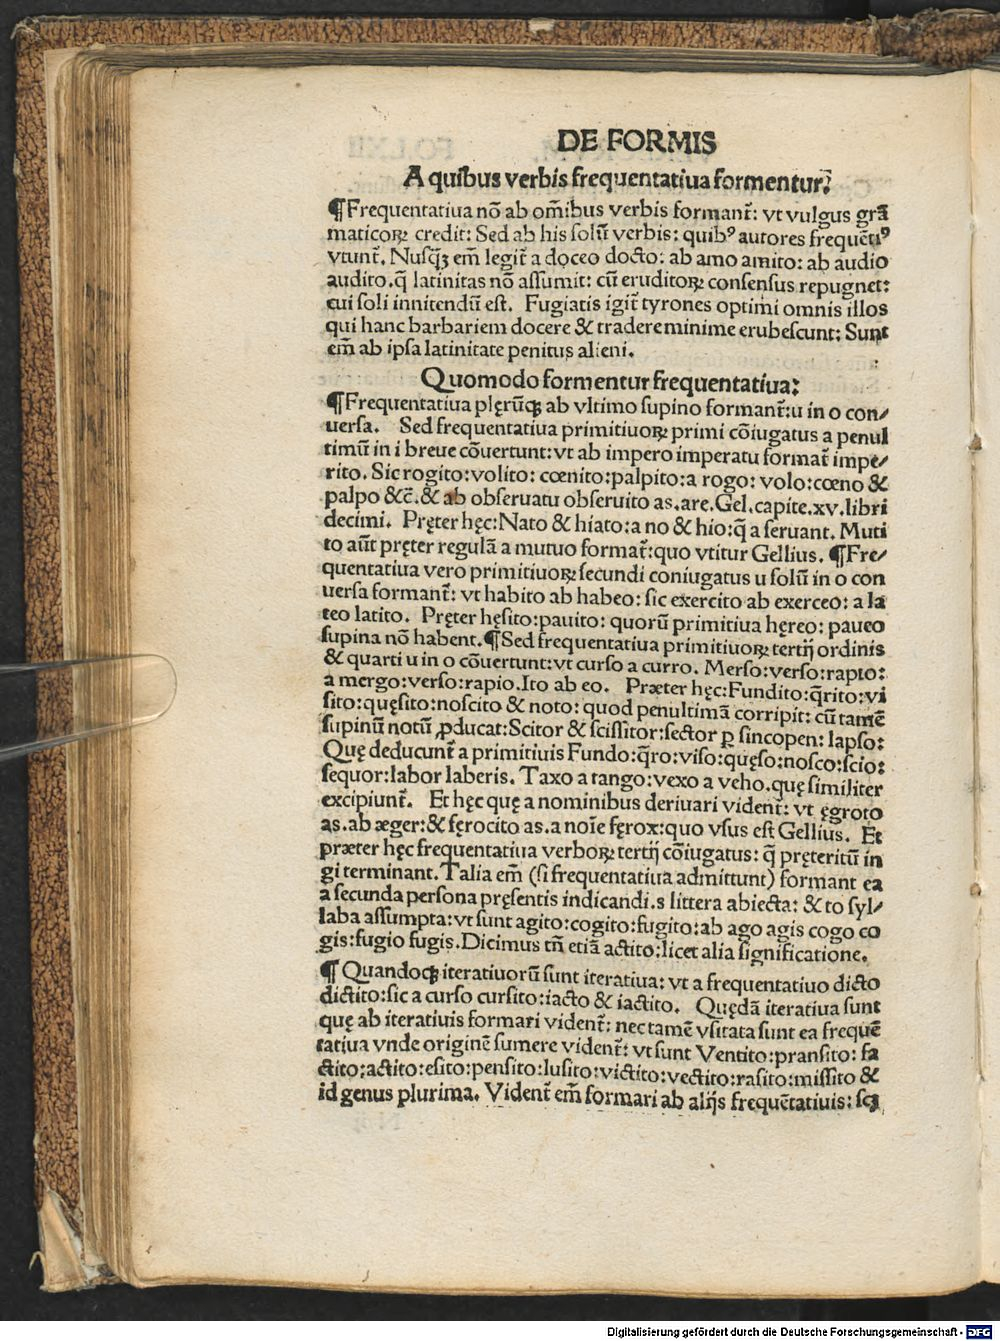 DE FORMIS
A quibus verbis frequentatiua formentur?
¶Frequentatiua nō ab om̄ibus verbis formant᷑: vt vulgus grā
maticoꝝ credit: Sed ab his solū verbis: quibꝰ autores frequētiꝰ
vtunt᷑. Nusqꝫ em̄ legit᷑ a doceo docto: ab amo amito: ab audio
audito.q̄ latinitas nō assumit: cū eruditoꝝ consensus repugnet:
cui soli innitendū est. Fugiatis igit᷑ tyrones optimi omnis illos
qui hanc barbariem docere & tradere minime erubescunt: Sunt
em̄ ab ipsa latinitate penitus alieni.
Quomodo formentur frequentatiua:
¶Frequentatiua plęrūqꝫ ab vltimo supino formant᷑:u in o con/
uersa. Sed frequentatiua primitiuoꝝ primi cōiugatus a penul
timū in i breue cōuertunt:vt ab impero imperatu format᷑ impe/
rito. Sic rogito:volito: cœnito:palpito:a rogo: volo:cœno &
palpo &c̄.& ab obseruatu obseruito as.are.Gel.capite.xv.libri
decimi. Pręter hęc:Nato & hiato:a no & hio:q̄ a seruant. Muti
to aūt pręter regulā a mutuo format᷑:quo vtitur Gellius. ¶Fre/
quentatiua vero primitiuoꝝ secundi coniugatus u solū in o con
uersa formant᷑: vt habito ab habeo: sic exercito ab exerceo: a la
teo latito. Pręter hęsito:pauito: quorū primitiua hęreo: paueo
supina nō habent.¶Sed frequentatiua primitiuoꝝ tertij ordinis
& quarti u in o cōuertunt:vt curso a curro. Merso:verso:rapto:
a mergo:verso:rapio.Ito ab eo. Præter hęc:Fundito:q̄rito:vi
sito:quęsito:noscito & noto: quod penultimā corripit: cū tamē
supinū notū ꝓducat:Scitor & scissitor:sector ꝑ sincopen: lapso:
Quę deducunt᷑ a primitiuis Fundo:q̄ro:viso:quęso:nosco:scio:
sequor:labor laberis. Taxo a tango:vexo a veho.quę similiter
excipiunt᷑. Et hęc quę a nominibus deriuari vident᷑: vt ęgroto
as.ab æger:& fęrocito as.a noīe fęrox:quo vsus est Gellius. Et
præter hęc frequentatiua verboꝝ tertij cōiugatus: q̄ pręteritū in
gi terminant.Talia em̄ (si frequentatiua admittunt) formant ea
a secunda persona pręsentis indicandi.s littera abiecta: & to syl/
laba assumpta:vt sunt agito:cogito:fugito:ab ago agis cogo co
gis:fugio fugis.Dicimus tn̄ etiā actito:licet alia significatione.
¶ Quandoqꝫ iteratiuorū sunt iteratiua: vt a frequentatiuo dicto
dictito:sic a curso cursito:iacto & iactito. Quędā iteratiua sunt
quę ab iteratiuis formari vident᷑: nec tamē vsitata sunt ea frequē
tatiua vnde originē sumere vident᷑: vt sunt Ventito:pransito: fa
ctito:actito:esito:pensito:lusito:victito:vectito:rasito:missito &
id genus plurima. Vident᷑ em̄ formari ab alijs frequētatiuis: scꝫ
Digitalisierung gefördert durch die Deutsche Forschungsgemeinschaft - DFG